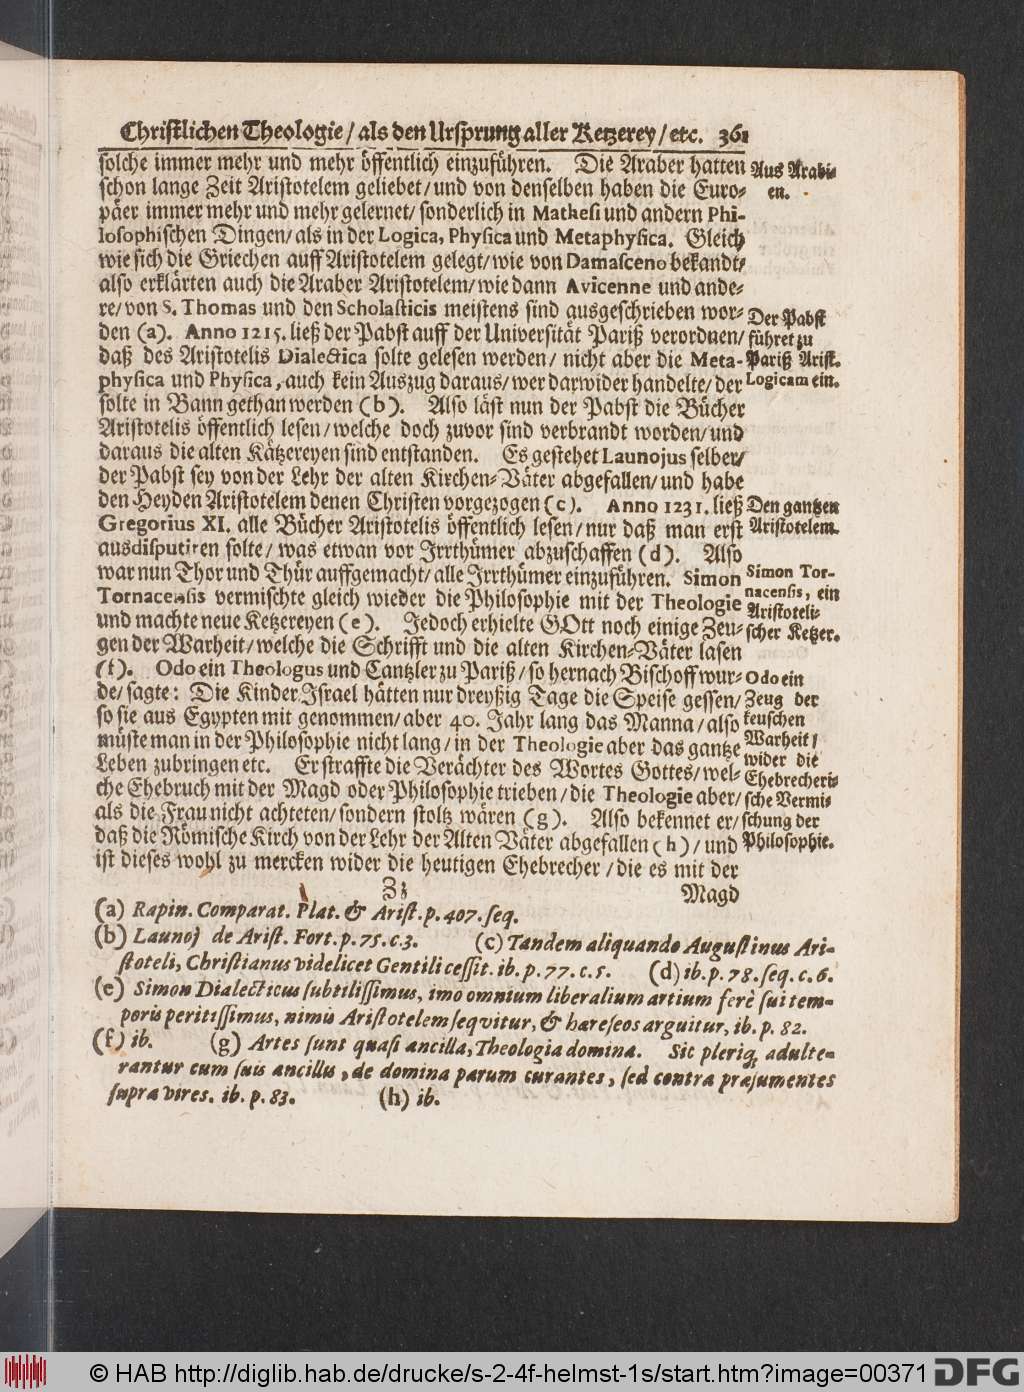 Christlichen Theologie / als den Ursprung aller Ketzerey / etc. 361
solche immer mehr und mehr öffentlich einzuführen. Die Araber hatten
schon lange Zeit Aristotelem geliebet / und von denselben haben die Euro-
päer immer mehr und mehr gelernet / sonderlich in Mathesi und andern Phi-
losophischen Dingen / als in der Logica, Physica und Metaphysica. Gleich
wie sich die Griechen auff Aristotelem gelegt / wie von Damasceno bekandt /
also erklärten auch die Araber Aristotelem / wie dann Avicenne und ande-
re / von S. Thomas und den Scholasticis meistens sind ausgeschrieben wor-
den (a). Anno 1215. ließ der Pabst auff der Universität Pariß verordnen /
daß des Aristotelis Dialectica solte gelesen werden / nicht aber die Meta-
physica und Physica, auch kein Auszug daraus / wer darwider handelte / der
solte in Bann gethan werden (b). Also läst nun der Pabst die Bücher
Aristotelis öffentlich lesen / welche doch zuvor sind verbrandt worden / und
daraus die alten Kätzereyen sind entstanden. Es gestehet Launojus selber /
der Pabst sey von der Lehr der alten Kirchen-Väter abgefallen / und habe
den Heyden Aristotelem denen Christen vorgezogen (c). Anno 1231. ließ
Gregorius XI. alle Bücher Aristotelis öffentlich lesen / nur daß man erst
ausdisputiren solte / was etwan vor Irrthümer abzuschaffen (d). Also
war nun Thor und Thür auffgemacht / alle Irrthümer einzuführen. Simon
Tornacensis vermischte gleich wieder die Philosophie mit der Theologie
und machte neue Ketzereyen (e). Jedoch erhielte GOtt noch einige Zeu-
gen der Warheit / welche die Schrifft und die alten Kirchen-Väter lasen
(f). Odo ein Theologus und Cantzler zu Pariß / so hernach Bischoff wur-
de / sagte: Die Kinder Israel hätten nur dreyßig Tage die Speise gessen /
so sie aus Egypten mit genommen / aber 40. Jahr lang das Manna / also
müste man in der Philosophie nicht lang / in der Theologie aber das gantze
Leben zubringen etc. Er straffte die Verächter des Wortes Gottes / wel-
che Ehebruch mit der Magd oder Philosophie trieben / die Theologie aber /
als die Frau nicht achteten / sondern stoltz wären (g). Also bekennet er /
daß die Römische Kirch von der Lehr der Alten Väter abgefallen (h) / und
ist dieses wohl zu mercken wider die heutigen Ehebrecher / die es mit der
Zz Magd
Aus Arabi-
en.
Der Pabst
führet zu
Pariß Arist.
Logicam ein.
Den gantzen
Aristotelem.
Simon Tor-
nacensis, ein
Aristoteli-
scher Ketzer.
Odo ein
Zeug der
keuschen
Warheit /
wider die
Ehebrecheri-
sche Vermi-
schung der
Philosophie.
(a) Rapin. Comparat. Plat. & Arist. p. 407. seq.
(b) Launoj de Arist. Fort. p. 75. c. 3. (c) Tandem aliquando Augustinus Ari-
stoteli, Christianus videlicet Gentili cessit. ib. p. 77. c. 5. (d) ib. p. 78. seq. c. 6.
(e) Simon Dialecticus subtilissimus, imo omnium liberalium artium ferè sui tem-
poris peritissimus, nimis Aristotelem seqvitur, & hæreseos arguitur, ib. p. 82.
(f) ib. (g) Artes sunt quasi ancilla, Theologia domina. Sic pleriq; adulte-
rantur cum suis ancillis, de domina parum curantes, sed contra præsumentes
supra vires. ib. p. 83. (h) ib.
© HAB http://diglib.hab.de/drucke/s-2-4f-helmst-1s/start.htm?image=00371 DFG